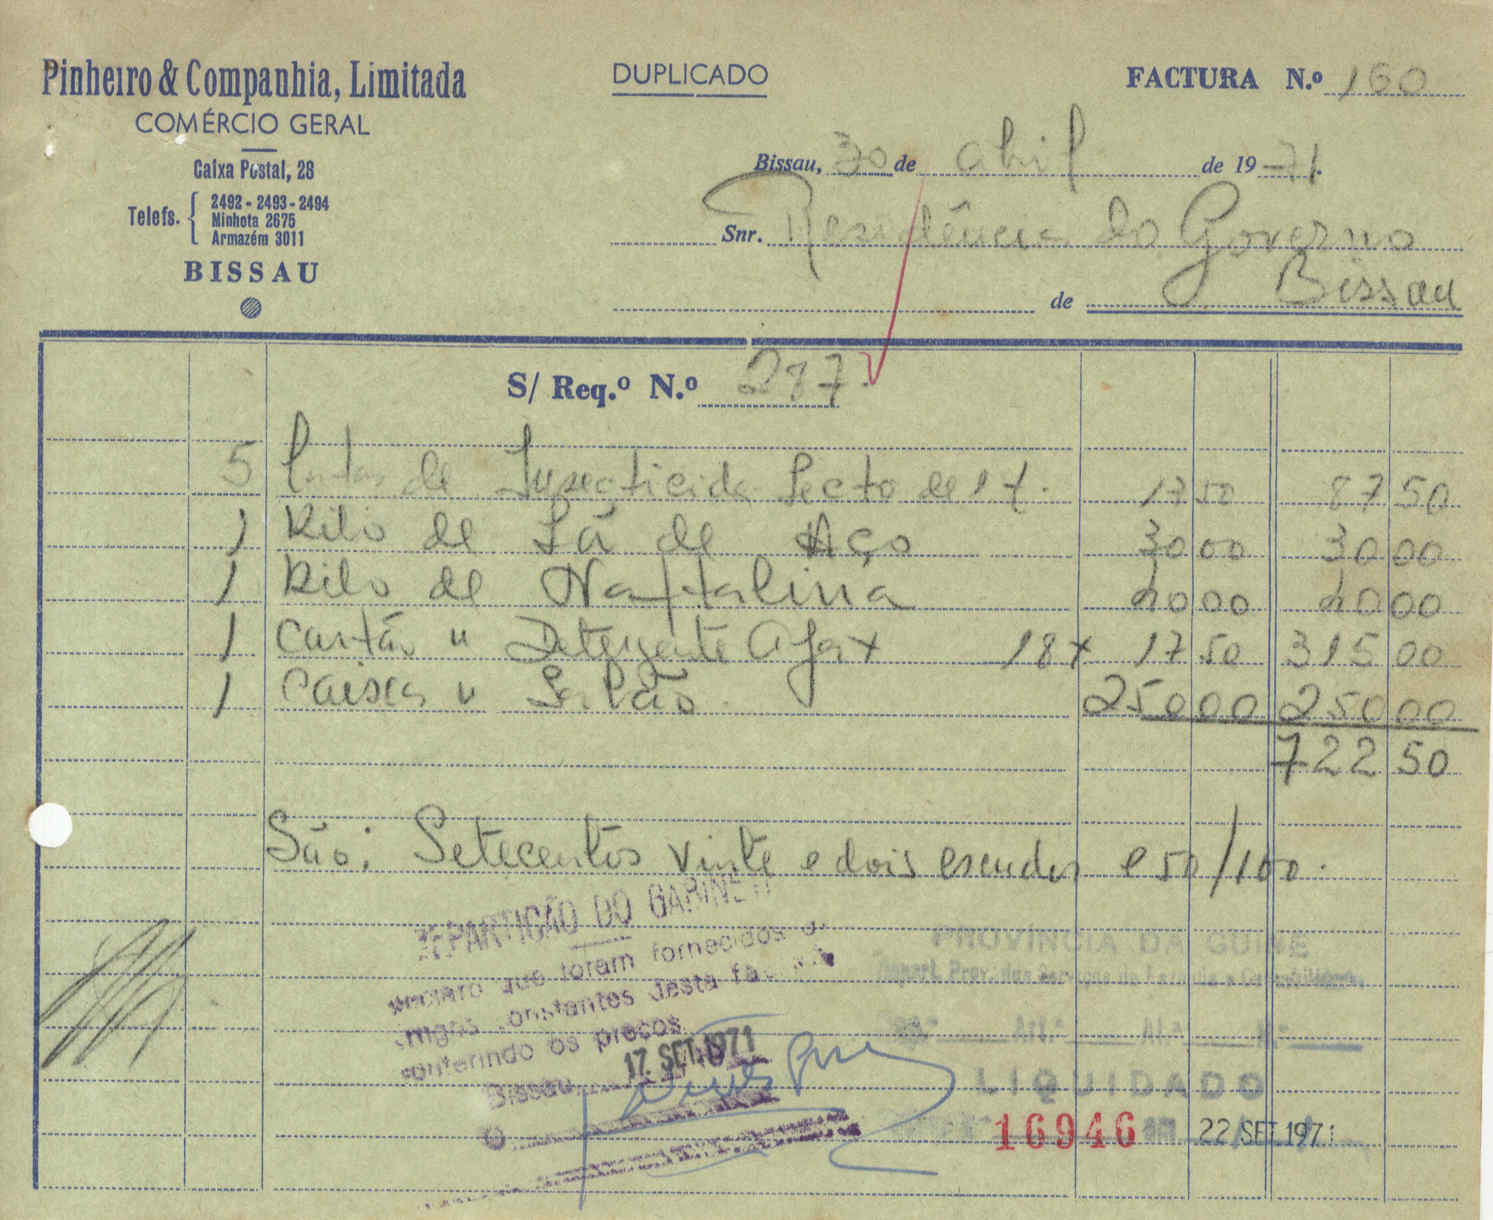 Pinheiro & Companhia, Limitada
COMÉRCIO GERAL
Caixa Postal, 28
Telefs. 2492 - 2493 - 2494
Minhota 2675
Armazém 3011
BISSAU
DUPLICADO
FACTURA N.º 160
Bissau, 30 de Abril de 1971.
Snr. Residência do Governo
de Bissau
S/ Req.º N.º 287
5 Latas de Insecticida Secto de 1 l. 17 50 87 50
1 Kilo de Lã de Aço 30 00 30 00
1 Kilo de Naftalina 40 00 40 00
1 Cartão " Detergente Ajax 18 x 17 50 315 00
1 Caixa " Sabão 250 00 250 00
722 50
São: Setecentos vinte e dois escudos e 50/100.
REPARTIÇÃO DO GABINETE
Declaro que foram fornecidos os
artigos constantes desta factura
conferindo os preços
Bissau 17. SET. 1971
O
PROVÍNCIA DA GUINÉ
Repart. Prov. dos Serviços de Fazenda e Contabilidade
Cap.º Art.º Al.ª N.º
LIQUIDADO
16946 em 22 SET. 1971